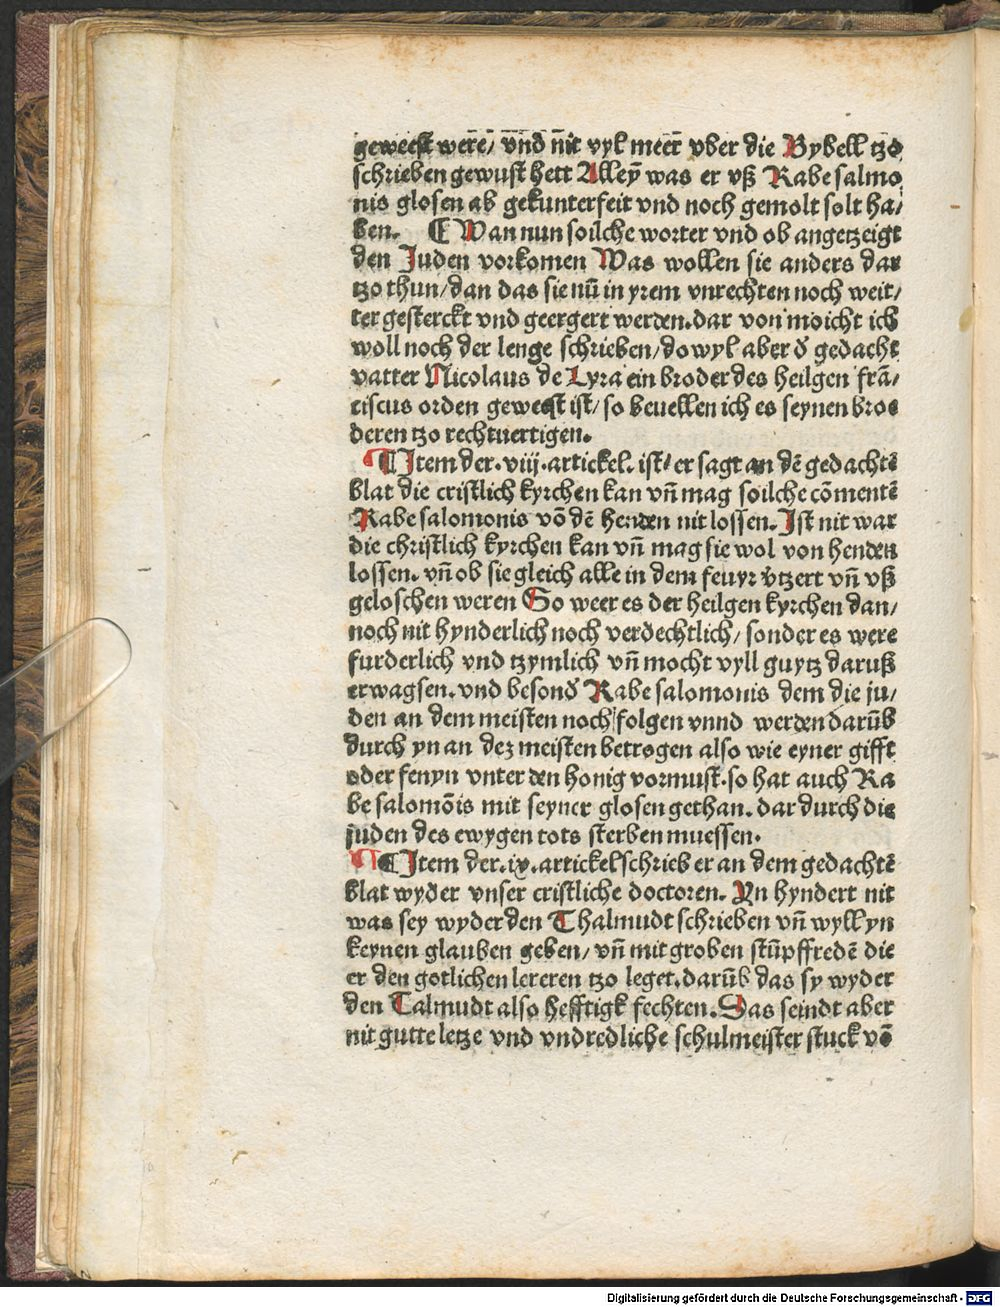 geweest were/ vnd nit vyl meer vber die Bybell tzo
schrieben gewust hett Alleyn̄ was er vß Rabe salmo
nis glosen ab gekunterfeit vnd noch gemolt solt ha/
ben. ¶ Wan nun soilche worter vnd ob angetzeigt
den Juden vorkomen Was wollen sie anders dar
tzo thun/ dan das sie nū in yrem vnrechten noch weit/
ter gesterckt vnd geergert werden. dar von moicht ich
woll noch der lenge schrieben/ do wyl aber d̓ gedacht
vatter Nicolaus de Lyra ein broder des heilgen frā/
ciscus orden geweest ist/ so beuellen ich es seynen bros
deren tzo rechtuertigen.
¶ Item der. viij. artickel. ist/ er sagt an dē gedachtē
blat die cristlich kyrchen kan vn̄ mag soilche cōmentē
Rabe salomonis vō dē henden nit lossen. Ist nit war
die christlich kyrchen kan vn̄ mag sie wol von henden
lossen. vn̄ ob sie gleich alle in dem feuyr v̓tzert vn̄ vß
geloschen weren So weer es der heilgen kyrchen dan/
noch nit hynderlich noch verdechtlich/ sonder es were
furderlich vnd tzymlich vn̄ mocht vyll guytz daruß
erwagsen. vnd besond̓ Rabe salomonis dem die ju/
den an dem meisten noch folgen vnnd werden darūb
durch yn an dez meisten betrogen also wie eyner gifft
oder fenyn vnter den honig vormust. so hat auch Ra
be salomōis mit seyner glosen gethan. dar durch die
juden des ewygen tots sterben muessen.
¶ Item der. ix. artickel schrieb er an dem gedachtē
blat wyder vnser cristliche doctoren. Yn hyndert nit
was sey wyder den Thalmudt schrieben vn̄ wyll yn
keynen glauben geben/ vn̄ mit groben stūpffredē die
er den gotlichen lereren tzo leget. darūb das sy wyder
den Talmudt also hefftigk fechten. Das seindt aber
nit gutte letze vnd vndredliche schulmeister stuck vō
Digitalisierung gefördert durch die Deutsche Forschungsgemeinschaft - DFG